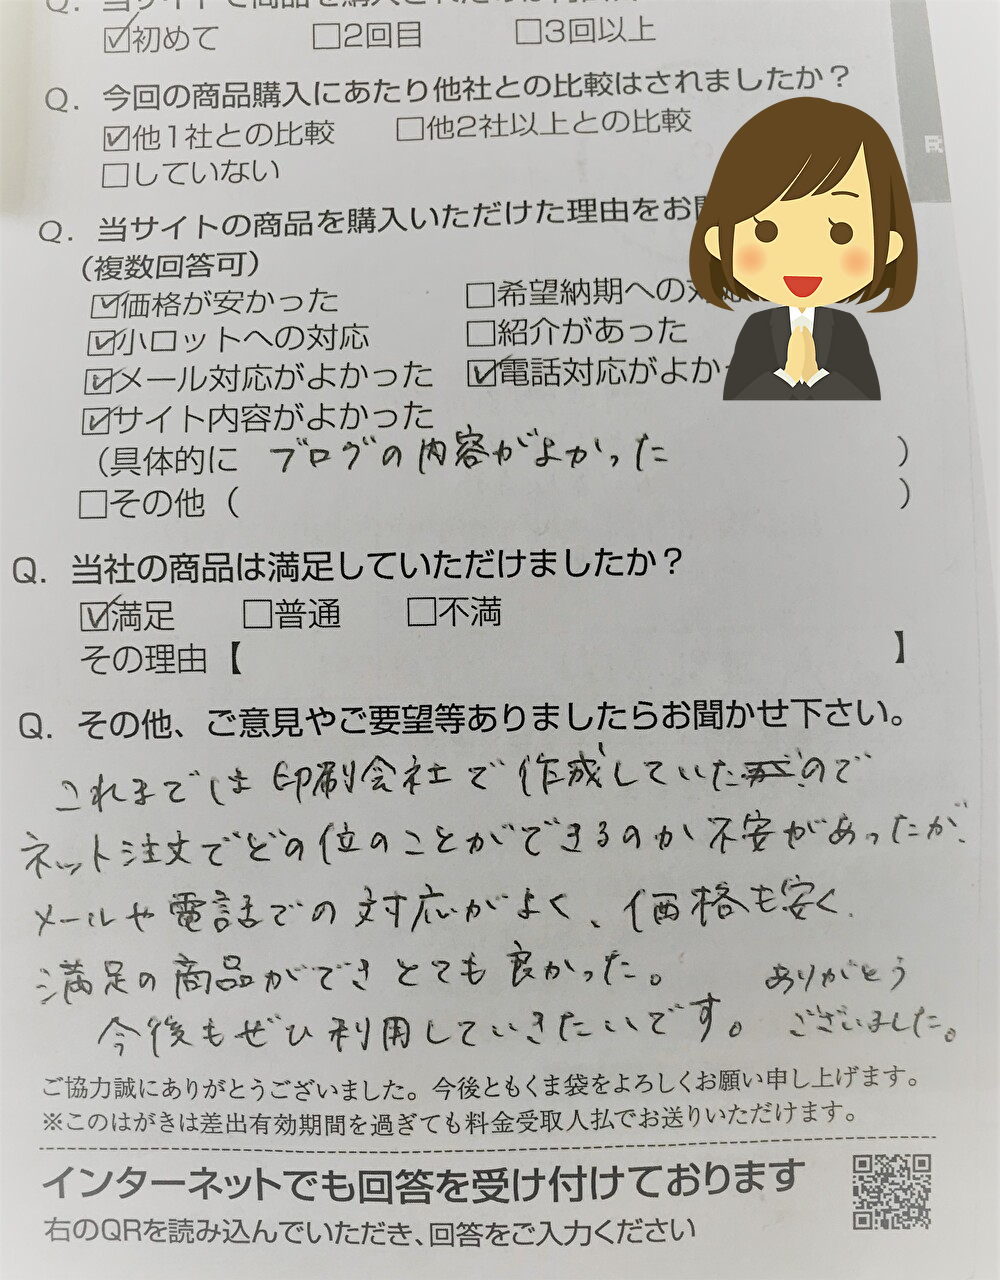 Q. 当サイトで商品を購入されたのは何回
☑初めて □2回目 □3回以上
Q. 今回の商品購入にあたり他社との比較はされましたか？
☑他1社との比較 □他2社以上との比較
□していない
Q. 当サイトの商品を購入いただけた理由をお
（複数回答可）
☑価格が安かった □希望納期への対応
☑小ロットへの対応 □紹介があった
☑メール対応がよかった ☑電話対応がよか
☑サイト内容がよかった
（具体的に ブログの内容がよかった ）
□その他（ ）
Q. 当社の商品は満足していただけましたか？
☑満足 □普通 □不満
その理由【 】
Q. その他、ご意見やご要望等ありましたらお聞かせ下さい。
これまでは印刷会社で作成していたので
ネット注文でどの位のことができるのか不安があったが、
メールや電話での対応がよく、価格も安く、
満足の商品ができとても良かった。 ありがとう
今後もぜひ利用していきたいです。 ございました。
ご協力誠にありがとうございました。今後ともくま袋をよろしくお願い申し上げます。
※このはがきは差出有効期間を過ぎても料金受取人払でお送りいただけます。
インターネットでも回答を受け付けております
右のQRを読み込んでいただき、回答をご入力ください